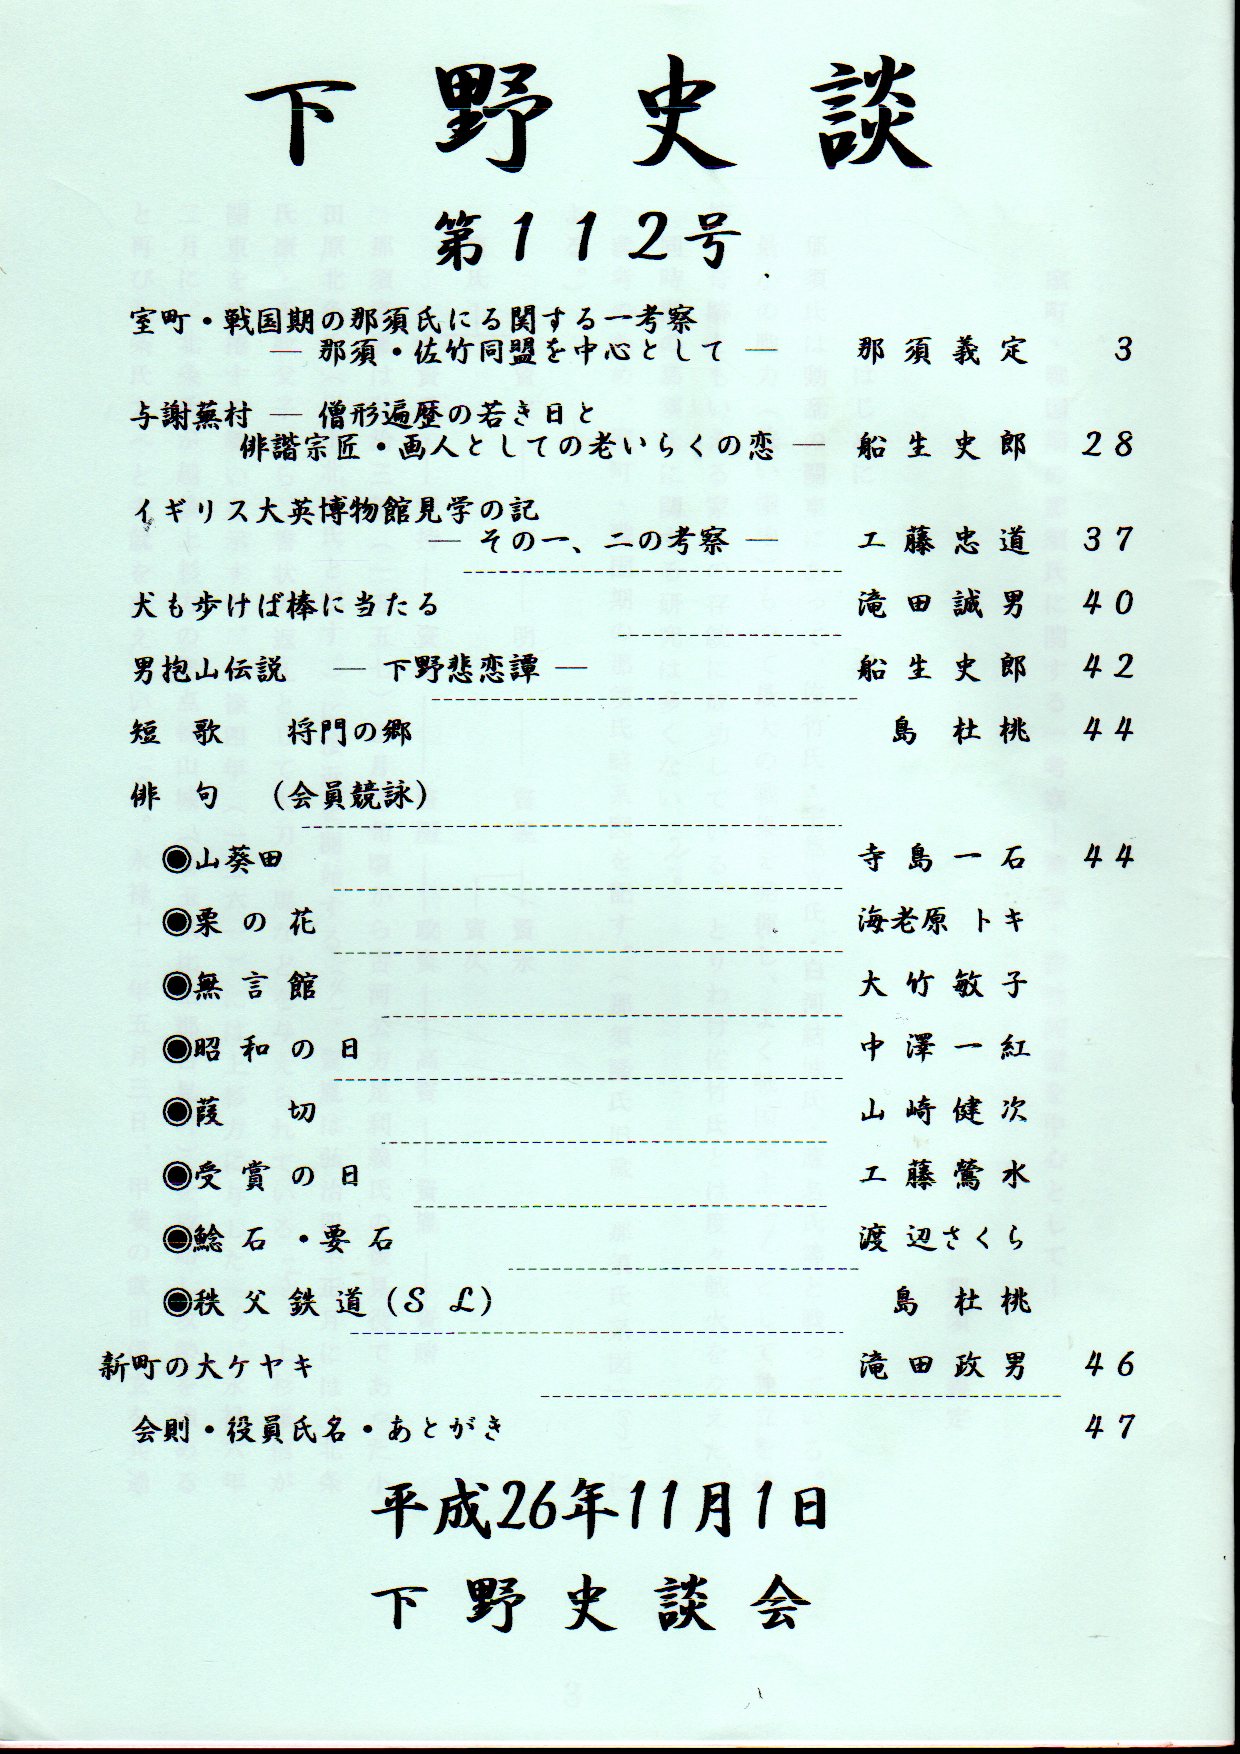 下野史談
第112号
室町・戦国期の那須氏にる関する一考察
― 那須・佐竹同盟を中心として ― 那須義定 3
与謝蕪村 ― 僧形遍歴の若き日と
俳諧宗匠・画人としての老いらくの恋 ― 船生史郎 28
イギリス大英博物館見学の記
― その一、二の考察 ― 工藤忠道 37
犬も歩けば棒に当たる 滝田誠男 40
男抱山伝説 ― 下野悲恋譚 ― 船生史郎 42
短歌 将門の郷 島杜桃 44
俳句 (会員競詠)
◉山葵田 寺島一石 44
◉栗の花 海老原トキ
◉無言館 大竹敏子
◉昭和の日 中澤一紅
◉葭切 山崎健次
◉受賞の日 工藤鶯水
◉鯰石・要石 渡辺さくら
◉秩父鉄道(SL) 島杜桃
新町の大ケヤキ 滝田政男 46
会則・役員氏名・あとがき 47
平成26年11月1日
下野史談会